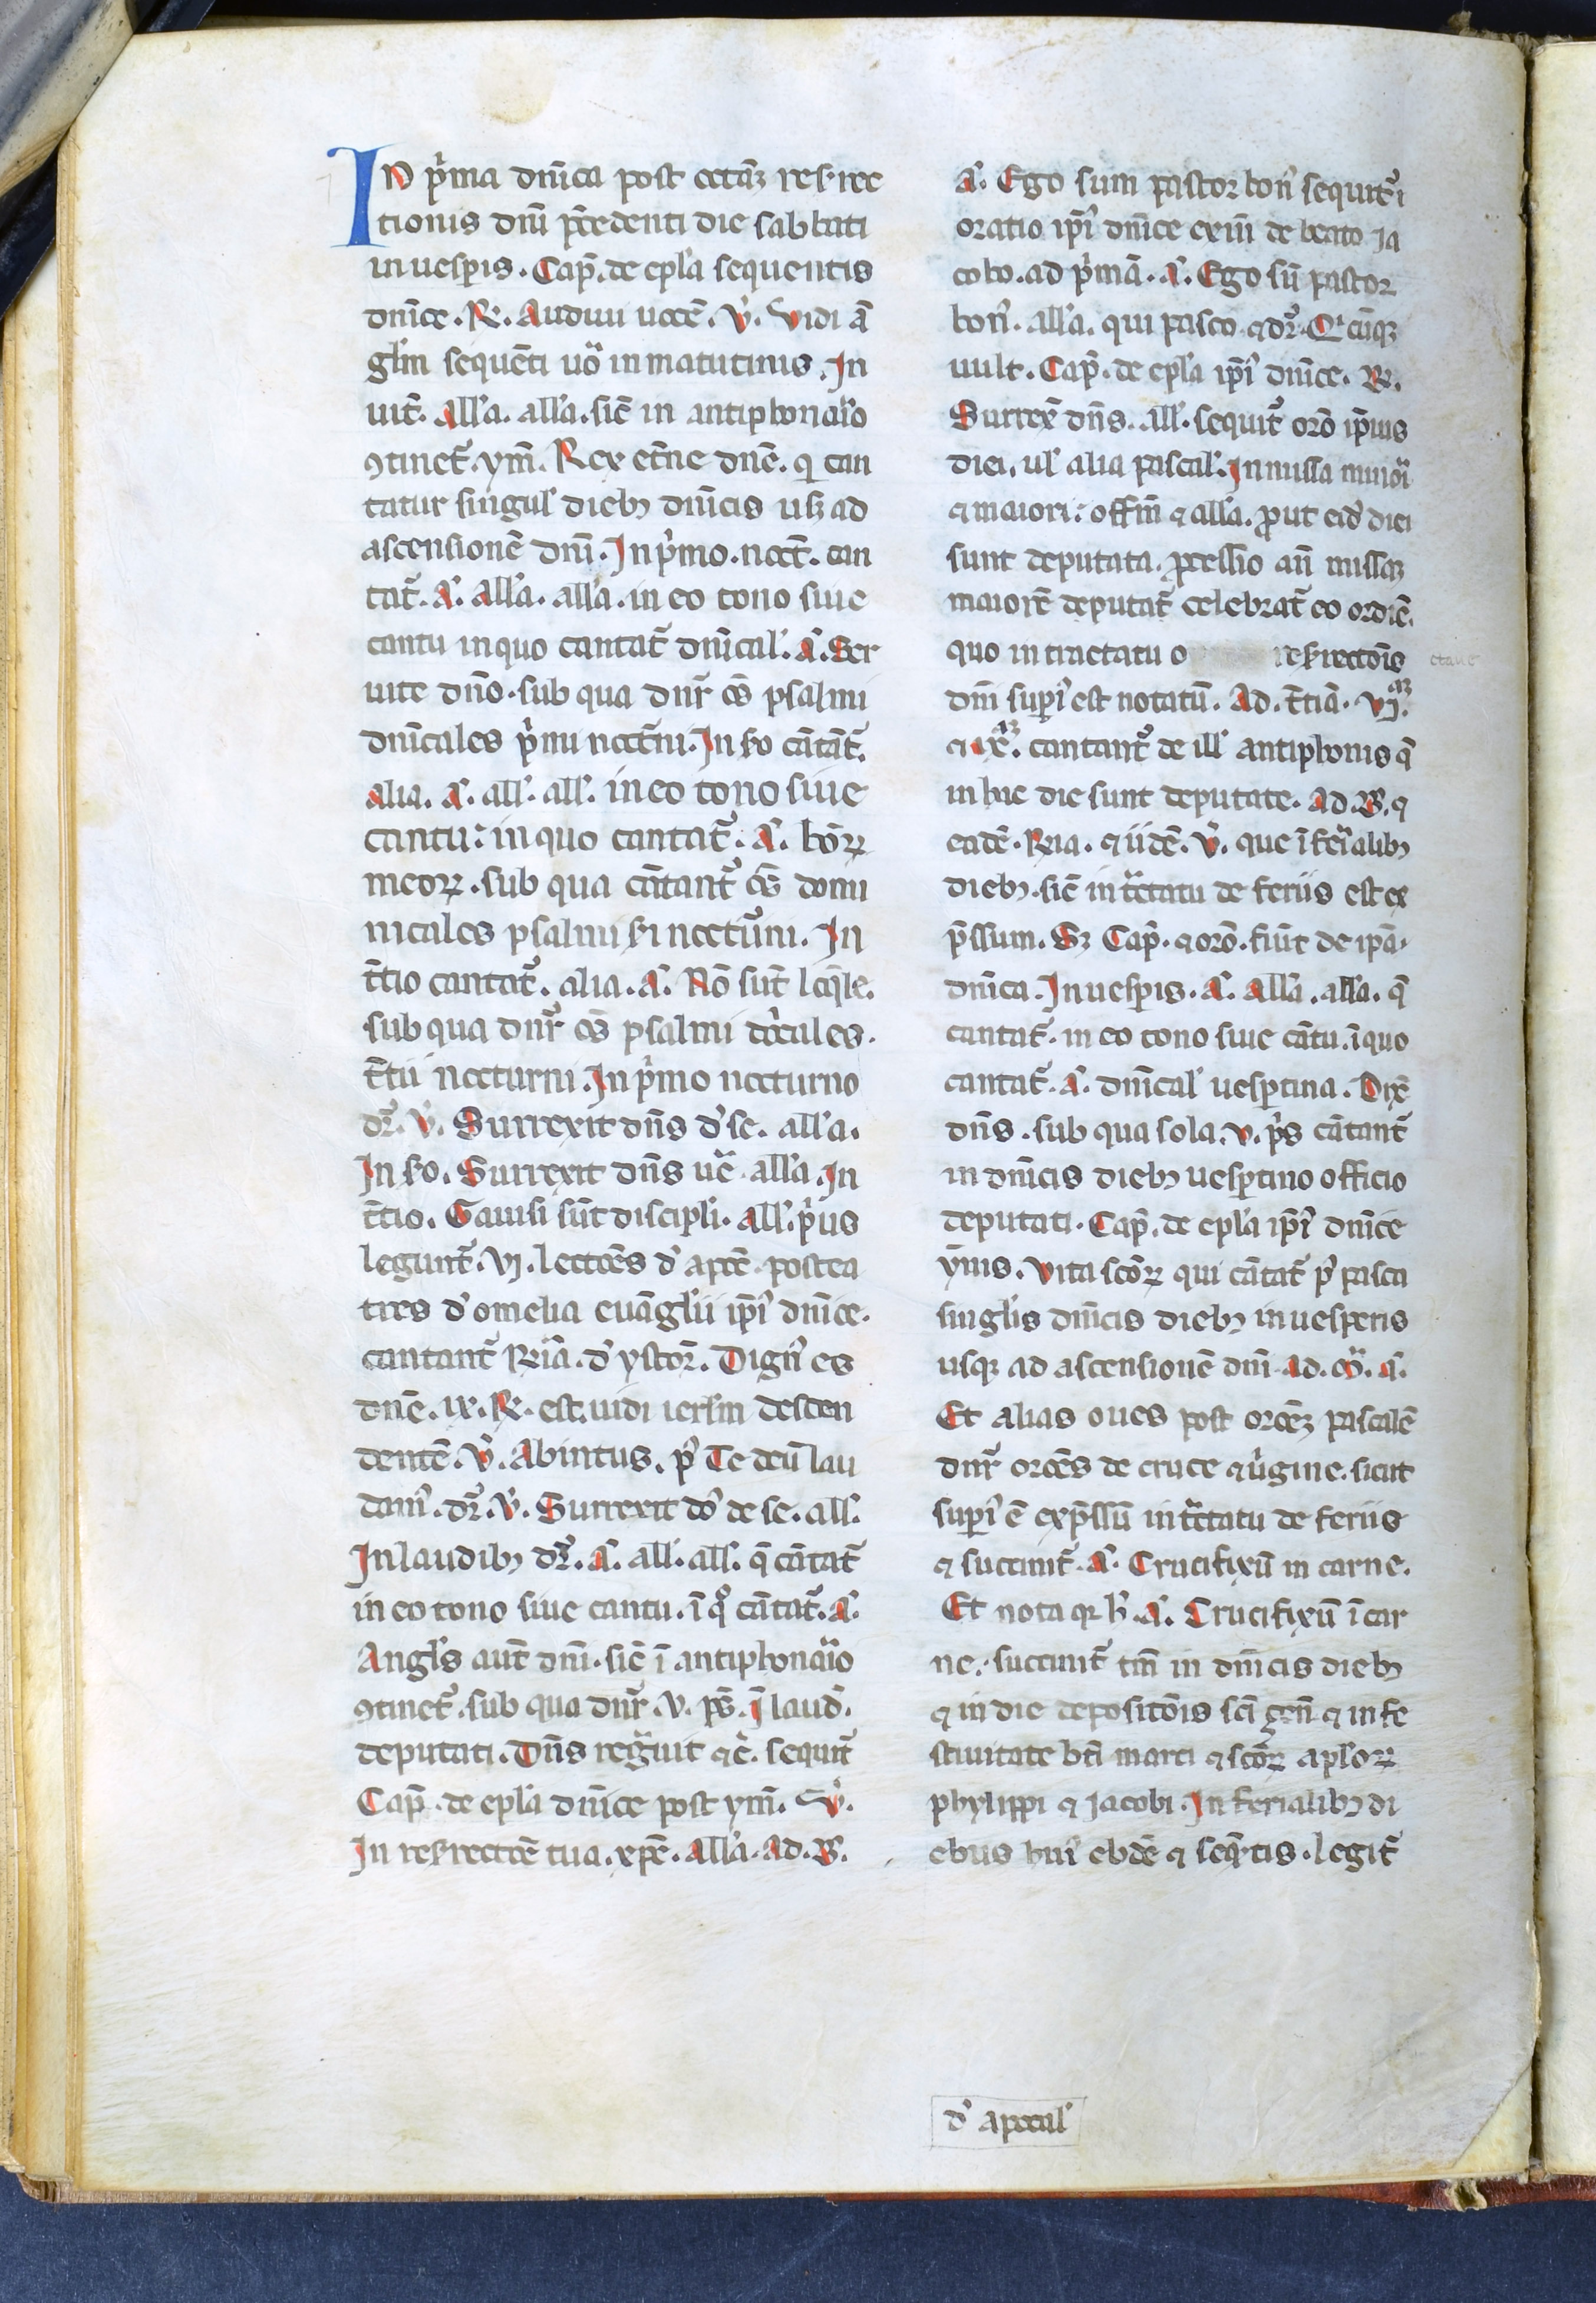 IN p̓ma dn̄ica post octāꝫ resr̄rec
tionis dn̄i p̄cedenti die sabbati
in uesp̄is. Cap̄. de ep̄la sequentis
dn̄ice. R. Audiuī uocē. v̓. Vidi ā
gl̄m sequēti uō in matutinis. In
uit̄. All̓a. all̓a. sic̄ in antiphonar̓io
ꝯtinet̄. ym̄. Rex et̄ne dn̄e. q̄ can
tatur singul̓ dieb; dn̄icis usq; ad
ascensionē dn̄i. In p̓mo. noct̄. can
tat̄. a̓. All̓a. all̓a. in eo tono siue
cantu in quo cantat̄ dn̄ical̓. a̓. Ser
uite dn̄o. sub qua dn̄r̄ oc̄s psalmi
dn̄icales p̓mi noct̄ni. In s̄o cātāt̄.
alia. a̓. all̓. all̓. in eo tono siue
cantu: in quo cantat̄. a̓. bōꝝ
meoꝝ. sub qua cātant̄ oc̄s domi
nicales psalmi s̄i noctūni. In
t̄tio cantat̄. alia. a̓. Nō sūt loq̄le.
sub qua dn̄r̄ oc̄s psalmi dn̄icales.
t̄tii nocturni. In p̓mo nocturno
dr̄. v̓. Surrexit dn̄s d̓ se. all̓a.
In s̄o. Surrexit dn̄s ue̓ all̓a. In
t̄tio. Gauisi sūt discipl̓i. all̓. p̓us
legunt̄. vj. lectōēs d̓ apoc̄. postea
tres d̓ omelia euāglii ip̄i̓ dn̄ice.
cantant̄ Rīa. d̓ ystor̄. Dign̓ es
dn̄e. ix. R. est. uidi ierl̓m descen
dentē. v̓. Ab intus. p̓ Te deū lau
dam̓. dr̄. v̓. Surrexit dn̄s de se. all̓.
In laudib; dr̄. a̓. all̓. all̓. q̄ cātat̄
in eo tono siue cantu. ī q̊ cātat̄. a̓.
Angl̓s aut̄ dn̄i. sic̄ ī antiphonar̓io
ꝯtinet̄. sub qua dn̄r̄. v. ps̄. ī laud̓.
deputati. Dn̄s regn̄auit ⁊c̄. sequit̄
Cap̄. de ep̄la dn̄ice post ym̄. v̓.
In resr̄rectōē tua. xp̄e. all̓a. Ad. B̓.
a̓. Ego sum pastor bon̓ sequit̄ i
oratio ip̄i̓ dn̄ice ex iīī de beato ja
cobo. ad p̓mā. a̓. Ego sū pastor
bon̓. all̓a. qui pasco ⁊ dr̄. Qⁱcūqꝫ
uult. Cap̄. de ep̄la ip̄i̓ dn̄ice. R.
Surrex̄ dn̄s. all̓. sequit̄ orō ip̄ius
diei. ul̓ alia pascal̓. In missa minori
⁊ maiori: offm̄ ⁊ all̓a. ꝓut eid̓ diei
sunt deputata. ꝓcessio an̄ missaꝫ
maiorē deputat̄ celebrat̄ eo ordīē.
quo in tractatu o resr̄rectōis
ctaue
dn̄i sup̄i̓ est notatū. Ad. t̄tiā. vj̄.
⁊ ix̄. cantant̄ de ill̓ antiphonis q̄
in hac die sunt deputate. Ad. B̓. ⁊
eadē. Rīa. ⁊ iidē. v̓. que ī ferialib;
dieb;. sic̄ in t̄ctatu de feriis est ex
p̄ssum. Sꝫ Cap̄. ⁊ orō. fiūt de ip̄a.
dn̄ica. In uesp̄is. a̓. All̓a. all̓a. q̄
cantat̄. in eo tono siue cātu. ī quo
cantat̄. a̓. dn̄ical̓ uesp̄tina. Dix̄
dn̄s. sub qua sola. v. p̄s cātant̄
in dn̄icis dieb; uesp̄tino officio
deputati. Cap̄. de ep̄la ip̄i̓ dn̄ice
ȳnus. Vita scōꝝ qui cātat̄ p̓ pasca
singl̓is dn̄icis dieb; in uesperis
usqꝫ ad ascensionē dn̄i. Ad. m̄. a̓.
Et alias oues post or̄oēꝫ pascalē
dn̄r̄ or̄oēs de cruce ⁊ ūgine. sicut
sup̄i̓ ē exp̄ssū in t̄ctatu de feriis
⁊ succinit̄. a̓. Crucifixū in carne.
Et nota qꝛ h̓. a̓. Crucifixū ī car
ne. succinit̄ tm̄ in dn̄icis dieb;
⁊ in die depositōis sc̄i gen̄ ⁊ in fe
stiuitate bt̄i marci ⁊ scōꝝ apl̓oꝝ
phylippi ⁊ Jacobi. In ferialib; di
ebus hui̓ ebdē ⁊ seq̄ntis. legit̄
d̓ apocal̓